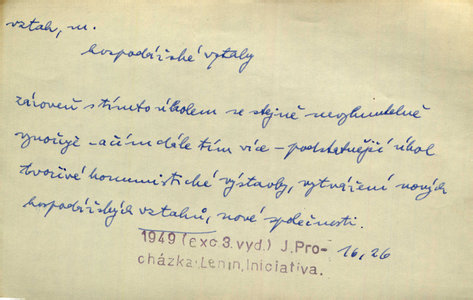 vztah, m.
hospodářské vztahy
zároveň s tímto úkolem se stejně nevyhnutelně
vynořuje - a čím dále tím více - podstatnější úkol
tvořivé komunistické výstavby, vytváření nových
hospodářských vztahů, nové společnosti.
1949 (exc 3. vyd.) J. Pro-
cházka: Lenin, Iniciativa.
16, 26